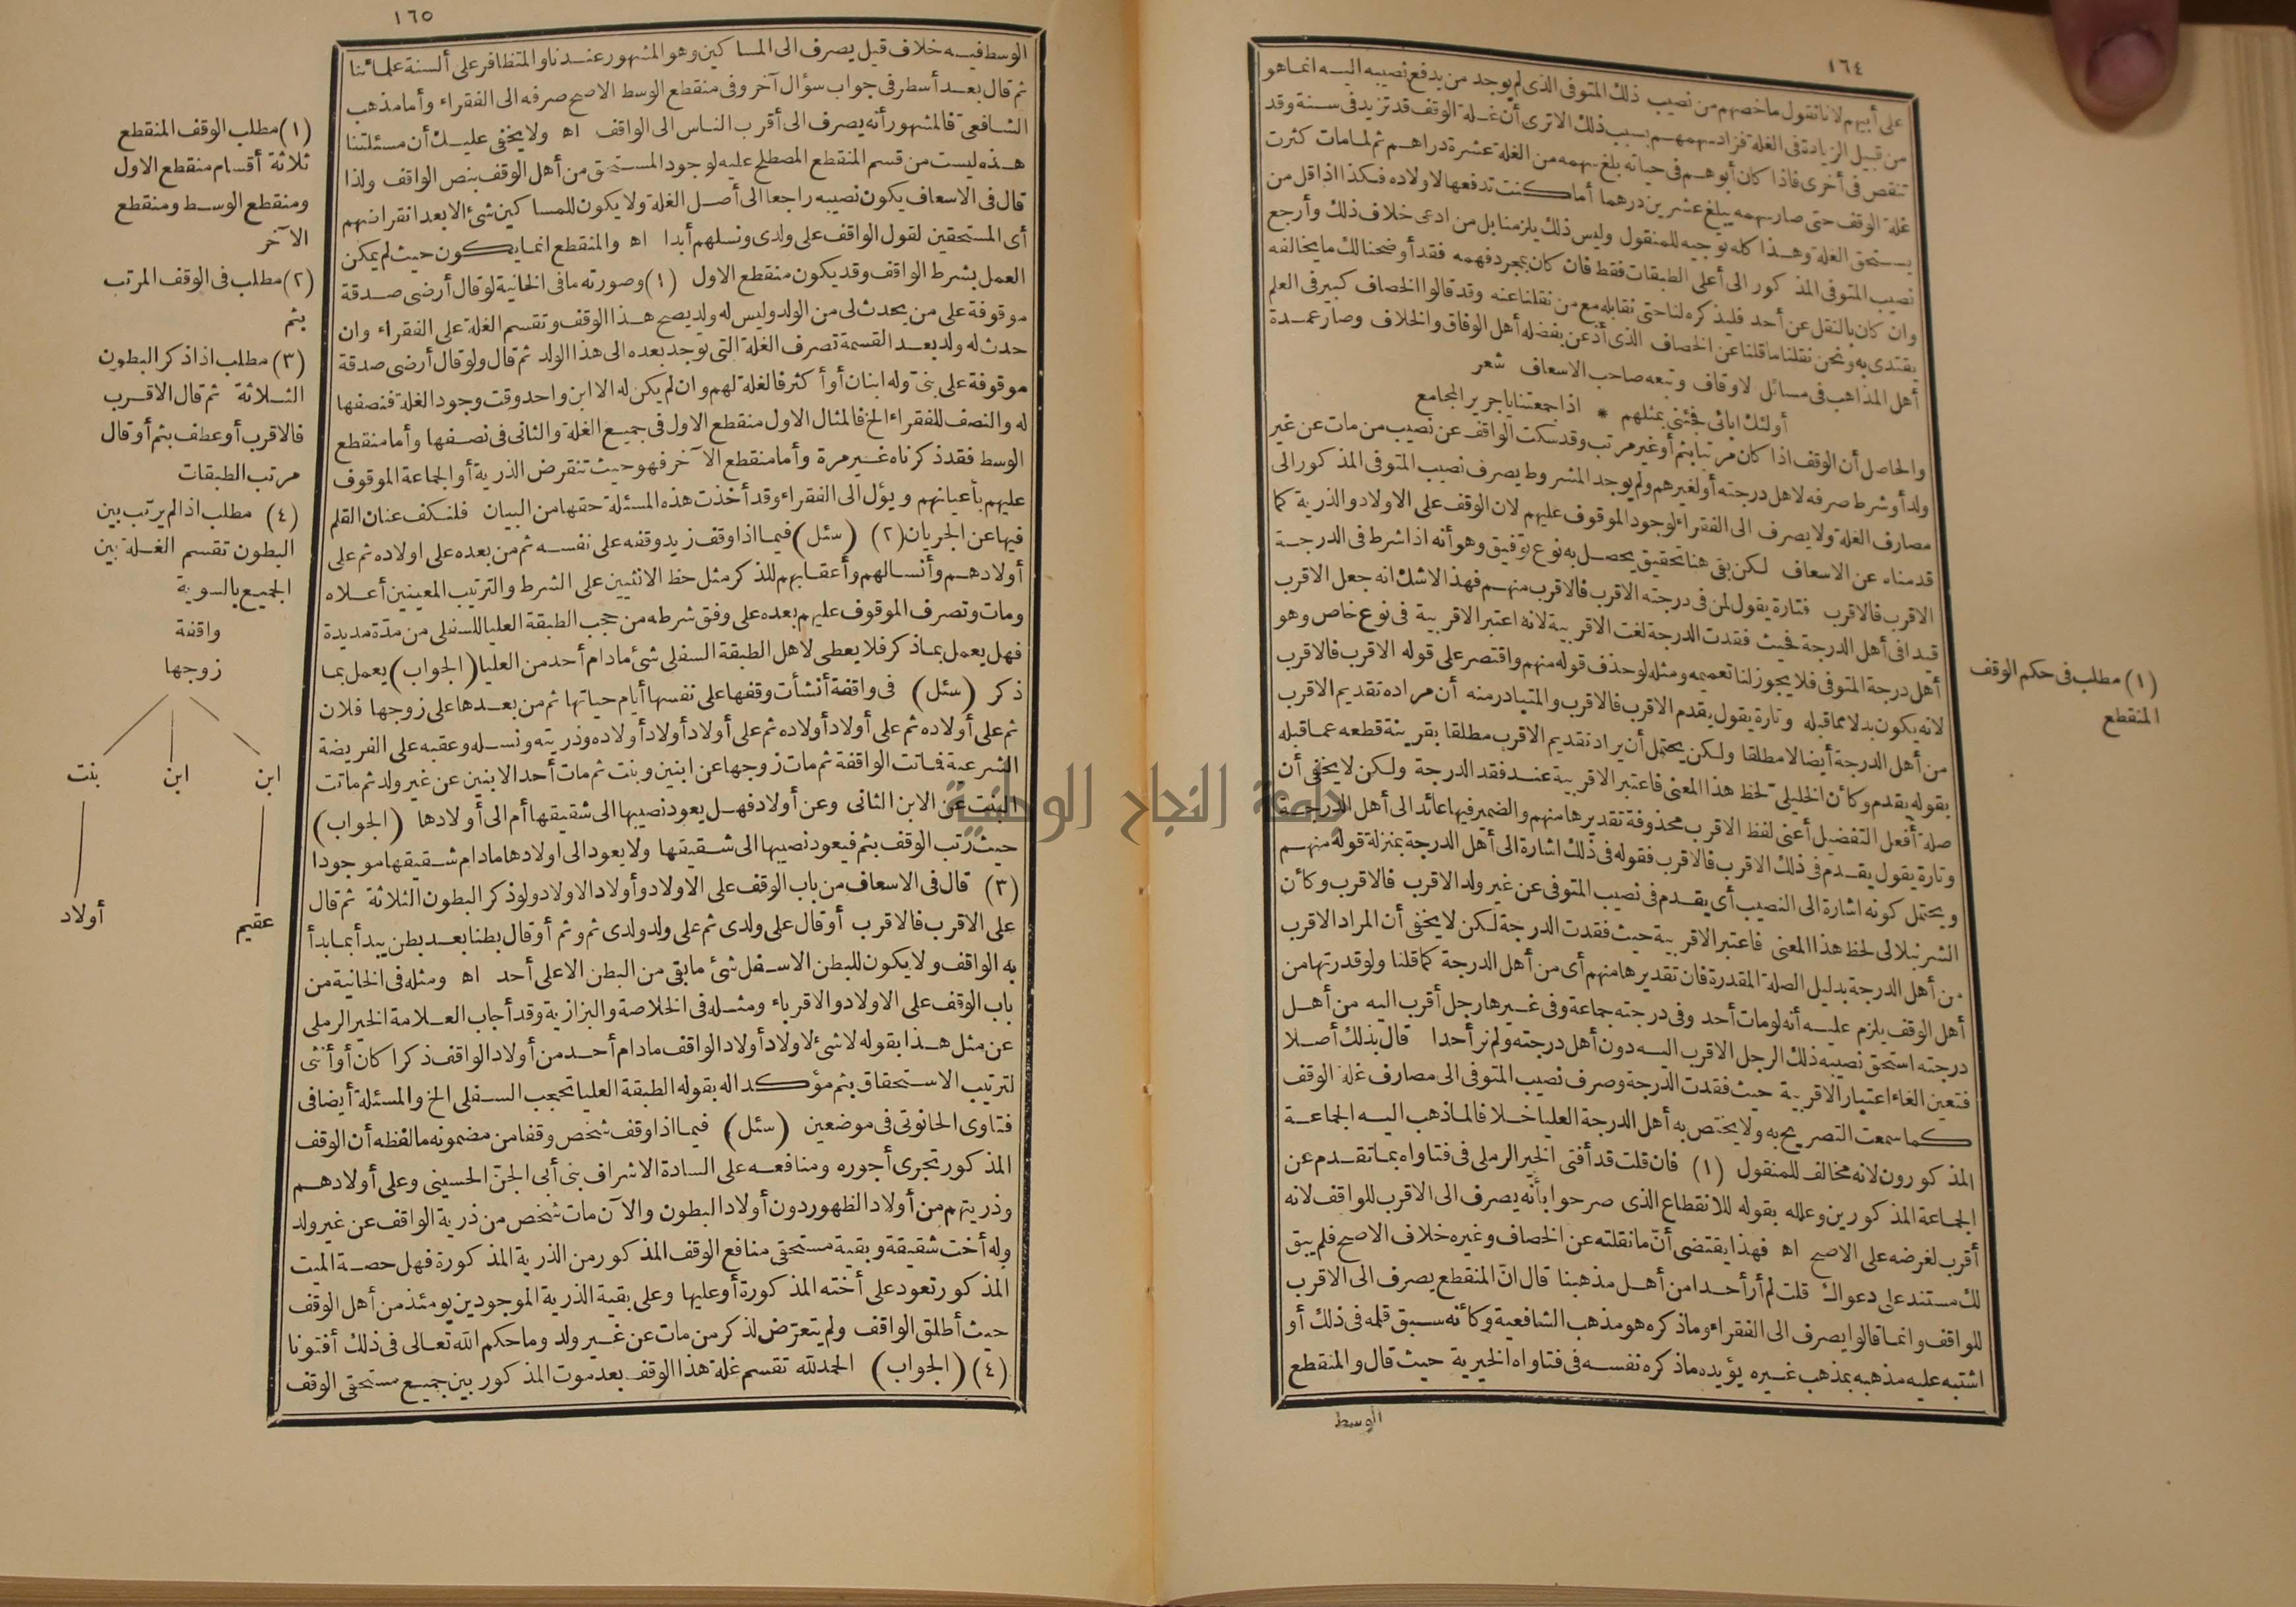 ١٦٤
على أبيهم لانا نقول ما خصهم من نصيب ذلك المتوفى الذى لم يوجد من يدفع نصيبه اليه انما هو
من قبيل الزيادة فى الغلة فزاد سهمهم بسبب ذلك الاترى أن غلة الوقف قد تزيد فى سنة وقد
تنقص فى أخرى فاذا كان أبوهم فى حياته بلغ سهمه من الغلة عشرة دراهم ثم لما مات كثرت
غلة الوقف حتى صار سهمه يبلغ عشرين درهما أما كنت تدفعها لاولاده فكذا اذا قل من
يستحق الغلة وهذا كله توجيه للمنقول وليس ذلك يلزمنا بل من ادعى خلاف ذلك وأرجع
نصيب المتوفى المذكور الى أعلى الطبقات فقط فان كان بمجرد فهمه فقد أوضحنا لك ما يخالفه
وان كان بالنقل عن أحد فليذكره لنا حتى نقابله مع من نقلنا عنه وقد قالوا الخصاف كبير فى العلم
يقتدى به ونحن نقلنا ما قلنا عن الخصاف الذى أذعن بفضله أهل الوفاق والخلاف وصار عمدة
أهل المذاهب فى مسائل لاوقاف وتبعه صاحب الاسعاف شعر
أولئك ابائى فجئنى بمثلهم * اذا جمعتنا يا جرير المجامع
والحاصل أن الوقف اذا كان مرتبا بثم أو غير مرتب وقد سكت الواقف عن نصيب من مات عن غير
ولد أو شرط صرفه لاهل درجته أو لغيرهم ولم يوجد المشروط يصرف نصيب المتوفى المذكور الى
مصارف الغلة ولا يصرف الى الفقراء لوجود الموقوف عليهم لان الوقف على الاولاد والذرية كما
قدمناه عن الاسعاف لكن بقى هنا تحقيق يحصل به نوع توفيق وهو أنه اذا شرط فى الدرجة
الاقرب فالاقرب فتارة يقول لمن فى درجته الاقرب فالاقرب منهم فهذا لاشك انه جعل الاقرب
قيدا فى أهل الدرجة فحيث فقدت الدرجة لغت الاقربية لانه اعتبر الاقربية فى نوع خاص وهو
أهل درجة المتوفى فلا يجوز لنا تعميمه ومثله لو حذف قوله منهم واقتصر على قوله الاقرب فالاقرب
لانه يكون بدلا مما قبله وتارة يقول يقدم الاقرب فالاقرب والمتبادر منه أن مراده تقديم الاقرب
من أهل الدرجة أيضا لا مطلقا ولكن يحتمل أن يراد تقديم الاقرب مطلقا بقرينة قطعه عما قبله
بقوله يقدم وكأن الخليلى لحظ هذا المعنى فاعتبر الاقربية عند فقد الدرجة ولكن لا يخفى أن
صلة أفعل التفضيل أعنى لفظ الاقرب محذوفة تقديرها منهم والضمير فيها عائد الى أهل الدرجة
وتارة يقول يقدم فى ذلك الاقرب فالاقرب فقوله فى ذلك اشارة الى أهل الدرجة بمنزلة قوله منهم
ويحتمل كونه اشارة الى النصيب أى يقدم فى نصيب المتوفى عن غير ولد الاقرب فالاقرب وكأن
الشرنبلالى لحظ هذا المعنى فاعتبر الاقربية حيث فقدت الدرجة لكن لا يخفى أن المراد الاقرب
من أهل الدرجة بدليل الصلة المقدرة فان تقديرها منهم أى من أهل الدرجة كما قلنا ولو قدرتها من
أهل الوقف يلزم عليه أنه لو مات أحد وفى درجته جماعة وفى غيرها رجل أقرب اليه من أهل
درجته استحق نصيبه ذلك الرجل الاقرب اليه دون أهل درجته ولم نر أحدا قال بذلك أصلا
فتعين الغاء اعتبار الاقربية حيث فقدت الدرجة وصرف نصيب المتوفى الى مصارف غلة الوقف
كما سمعت التصريح به ولا يختص به أهل الدرجة العليا خلافا لما ذهب اليه الجماعة
المذكورون لانه مخالف للمنقول (١) فان قلت قد أفتى الخير الرملى فى فتاواه بما تقدم عن
الجماعة المذكورين وعلله بقوله للانقطاع الذى صرحوا بأنه يصرف الى الاقرب للواقف لانه
أقرب لغرضه على الاصح اه فهذا يقتضى أن ما نقلته عن الخصاف وغيره خلاف الاصح فلم يبق
لك مستند على دعواك قلت لم أر أحدا من أهل مذهبنا قال ان المنقطع يصرف الى الاقرب
للواقف وانما قالوا يصرف الى الفقراء وما ذكره هو مذهب الشافعية وكأنه سبق قلمه فى ذلك أو
اشتبه عليه مذهبه بمذهب غيره يؤيده ما ذكره نفسه فى فتاواه الخيرية حيث قال والمنقطع
الوسط
(١) مطلب فى حكم الوقف
المنقطع
١٦٥
الوسط فيه خلاف قيل يصرف الى المساكين وهو المشهور عندنا والمتظافر على ألسنة علمائنا
ثم قال بعد أسطر فى جواب سؤال آخر وفى منقطع الوسط الاصح صرفه الى الفقراء وأما مذهب
الشافعى فالمشهور أنه يصرف الى أقرب الناس الى الواقف اه ولا يخفى عليك أن مسئلتنا
هذه ليست من قسم المنقطع المصطلح عليه لوجود المستحق من أهل الوقف بنص الواقف ولذا
قال فى الاسعاف يكون نصيبه راجعا الى أصل الغلة ولا يكون للمساكين شئ الا بعد انقراضهم
أى المستحقين لقول الواقف على ولدى ونسلهم أبدا اه والمنقطع انما يكون حيث لم يمكن
العمل بشرط الواقف وقد يكون منقطع الاول (١) وصورته ما فى الخانية لو قال أرضى صدقة
موقوفة على من يحدث لى من الولد وليس له ولد يصح هذا الوقف وتقسم الغلة على الفقراء وان
حدث له ولد بعد القسمة تصرف الغلة التى توجد بعده الى هذا الولد ثم قال ولو قال أرضى صدقة
موقوفة على بنى وله ابنان أو أكثر فالغلة لهم وان لم يكن له الا ابن واحد وقت وجود الغلة فنصفها
له والنصف للفقراء الخ فالمثال الاول منقطع الاول فى جميع الغلة والثانى فى نصفها وأما منقطع
الوسط فقد ذكرناه غير مرة وأما منقطع الآخر فهو حيث تنقرض الذرية أو الجماعة الموقوف
عليهم بأعيانهم ويؤل الى الفقراء وقد أخذت هذه المسئلة حقها من البيان فلنكف عنان القلم
فيها عن الجريان (٢) (سئل) فيما اذا وقف زيد وقفه على نفسه ثم من بعده على اولاده ثم على
أولادهم وأنسالهم وأعقابهم للذكر مثل حظ الانثيين على الشرط والترتيب المعينين أعلاه
ومات وتصرف الموقوف عليهم بعده على وفق شرطه من حجب الطبقة العليا للسفلى من مدة مديدة
فهل يعمل بما ذكر فلا يعطى لاهل الطبقة السفلى شئ ما دام أحد من العليا (الجواب) يعمل بما
ذكر (سئل) فى واقفة أنشأت وقفها على نفسها أيام حياتها ثم من بعدها على زوجها فلان
ثم على أولاده ثم على أولاد أولاده ثم على أولاد أولاد أولاده وذريته ونسله وعقبه على الفريضة
الشرعية فماتت الواقفة ثم مات زوجها عن ابنين وبنت ثم مات أحد الابنين عن غير ولد ثم ماتت
البنت عن الابن الثانى وعن أولاد فهل يعود نصيبها الى شقيقها أم الى أولادها (الجواب)
حيث رتب الوقف بثم فيعود نصيبها الى شقيقها ولا يعود الى اولادها مادام شقيقها موجودا
(٣) قال فى الاسعاف من باب الوقف على الاولاد وأولاد الاولاد ولو ذكر البطون الثلاثة ثم قال
على الاقرب فالاقرب أو قال على ولدى ثم على ولد ولدى ثم وثم أو قال بطنا بعد بطن يبدأ بما بدأ
به الواقف ولا يكون للبطن الاسفل شئ ما بقى من البطن الاعلى أحد اه ومثله فى الخانية من
باب الوقف على الاولاد والاقرباء ومثله فى الخلاصة والبزازية وقد أجاب العلامة الخير الرملى
عن مثل هذا بقوله لا شئ لاولاد أولاد الواقف مادام أحد من أولاد الواقف ذكرا كان أو أنثى
لترتيب الاستحقاق بثم مؤكدا له بقوله الطبقة العليا تحجب السفلى الخ والمسئلة أيضا فى
فتاوى الحانوتى فى موضعين (سئل) فيما اذا وقف شخص وقفا من مضمونه ما لفظه أن الوقف
المذكور تجرى أجوره ومنافعه على السادة الاشراف بنى أبى الجن الحسينى وعلى أولادهم
وذريتهم من أولاد الظهور دون أولاد البطون والآن مات شخص من ذرية الواقف عن غير ولد
وله أخت شقيقة وبقية مستحقى منافع الوقف المذكور من الذرية المذكورة فهل حصة الميت
المذكور تعود على أخته المذكورة أو عليها وعلى بقية الذرية الموجودين يومئذ من أهل الوقف
حيث أطلق الواقف ولم يتعرض لذكر من مات عن غير ولد وما حكم الله تعالى فى ذلك أفتونا
(٤) (الجواب) الحمد لله تقسم غلة هذا الوقف بعد موت المذكور بين جميع مستحقى الوقف
(١) مطلب الوقف المنقطع
ثلاثة أقسام منقطع الاول
ومنقطع الوسط ومنقطع
الآخر
(٢) مطلب فى الوقف المرتب
بثم
(٣) مطلب اذا ذكر البطون
الثلاثة ثم قال الاقرب
فالاقرب أو عطف بثم أو قال
مرتب الطبقات
(٤) مطلب اذا لم يرتب بين
البطون تقسم الغلة بين
الجميع بالسوية
واقفة
زوجها
ابن ابن بنت
عقيم أولاد
جامعة النجاح الوطنية